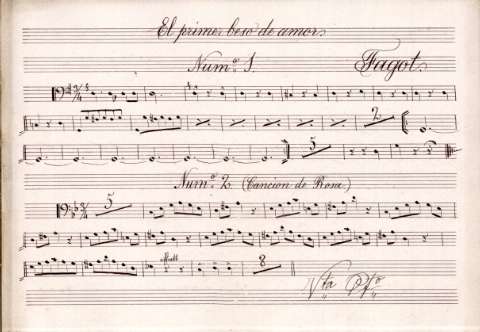 El primer beso de amor.
Num.º 1. Fagot.
2
5
Num.º 2. (Cancion de Rosa)
5
8
Vta Pto